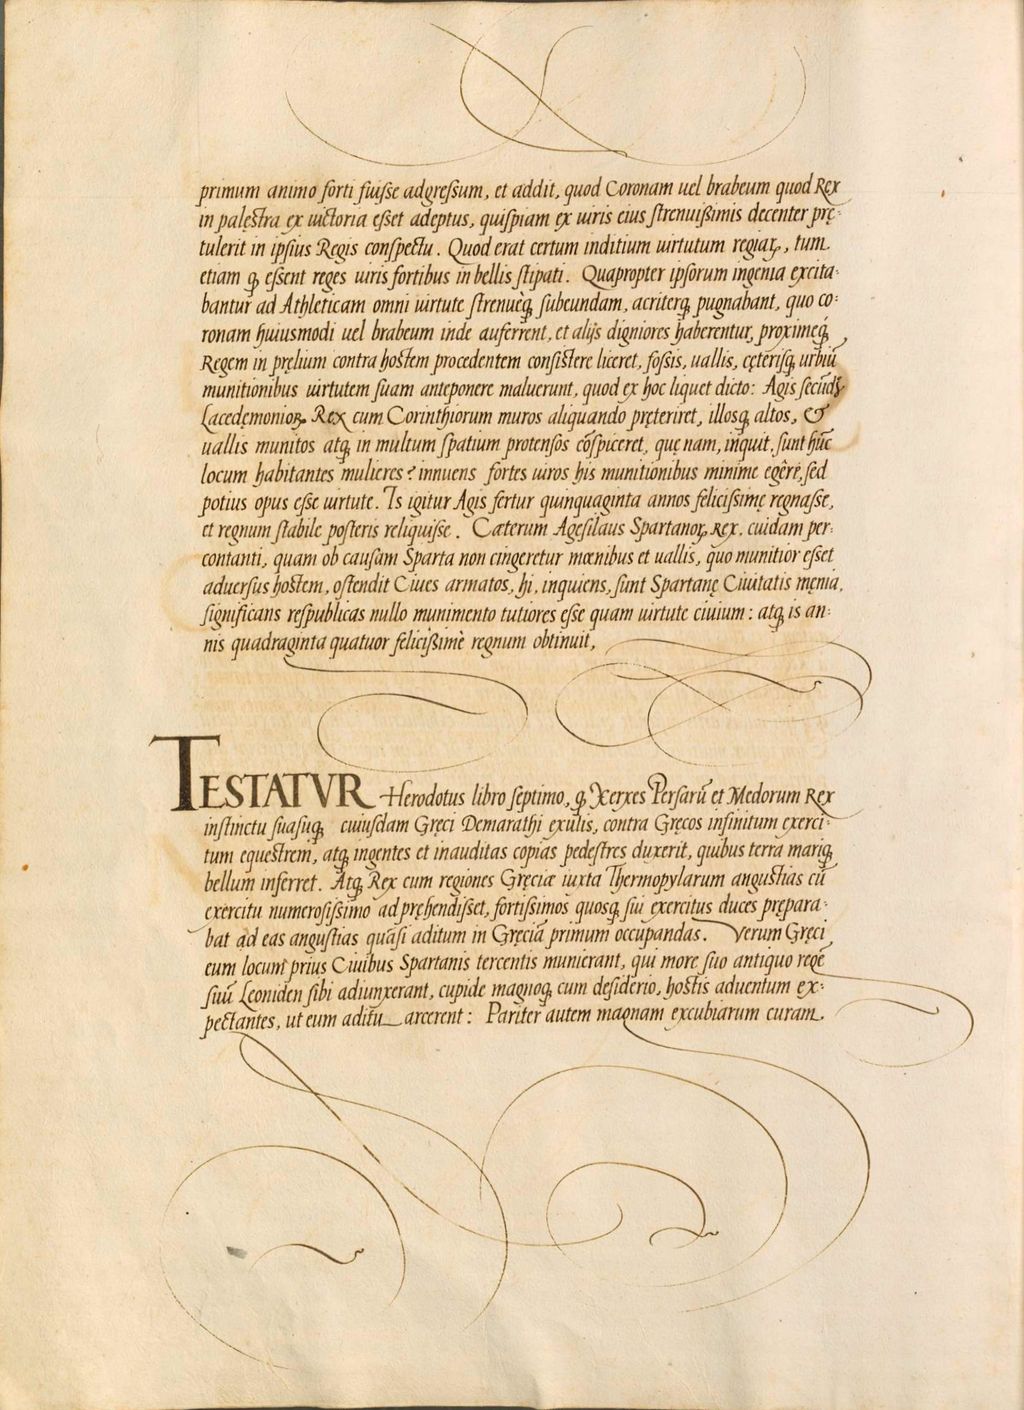 primum animo forti fuisse adgressum, et addit, quod Coronam uel brabeum quod Rex
in palęstra ex uictoria esset adeptus, quispiam ex uiris eius strenuissimis decenter prę-
tulerit in ipsius Regis conspectu. Quod erat certum inditium uirtutum regiaꝝ, tum
etiam ꝙ essent reges uiris fortibus in bellis stipati. Quapropter ipsorum ingenia excita-
bantur ad Athleticam omni uirtute strenuèꝗ subeundam, acriterꝗ pugnabant, quo co-
ronam huiusmodi uel brabeum inde auferrent, et alijs digniores haberentur, proximeꝗ
Regem in pręlium contra hostem procedentem consistere liceret, fossis, uallis, cęterisꝗ urbiū
munitionibus uirtutem suam anteponere maluerunt, quod ex hoc liquet dicto: Agis
Lacedęmonioꝝ Rex cum Corinthiorum muros aliquando pręteriret, illosꝗ altos, &
uallis munitos atꝗ in multum spatium protensos cōspiceret, quę nam, inquit, sunt hūc
locum habitantes mulieres? innuens fortes uiros his munitionibus minime egêre, sed
potius opus esse uirtute. Is igitur Agis fertur quinquaginta annos felicissimę regnasse,
et regnum stabile posteris reliquisse. Cæterum Agesilaus Spartanoꝝ Rex, cuidam per-
contanti, quam ob causam Sparta non cingeretur mœnibus et uallis, quo munitior esset
aduersus hostem, ostendit Ciues armatos, hi, inquiens, sunt Spartanę Ciuitatis męnia,
significans respublicas nullo munimento tutiores esse quam uirtute ciuium: atꝗ is an-
nis quadraginta quatuor felicissimè regnum obtinuit,
TESTATVR Herodotus libro septimo, ꝙ Xerxes Persarū et Medorum Rex
instinctu suasuꝗ cuiusdam Gręci Demarathi exulis, contra Gręcos infinitum exerci-
tum equestrem, atꝗ ingentes et inauditas copias pedestres duxerit, quibus terra mariꝗ
bellum inferret. Atꝗ Rex cum regiones Gręciæ iuxta Thermopylarum angustias cū
exercitu numerosissimo adpręhendisset, fortissimos quosꝗ sui exercitus duces prępara-
bat ad eas angustias quasi aditum in Gręciā primum occupandas. Verum Gręci
eum locum prius Ciuibus Spartanis tercentis munierant, qui more suo antiquo regē
suū Leoniden sibi adiunxerant, cupide magnoꝗ cum desiderio, hostis aduentum ex-
pectantes, ut eum aditu arcerent: Pariter autem magnam excubiarum curam